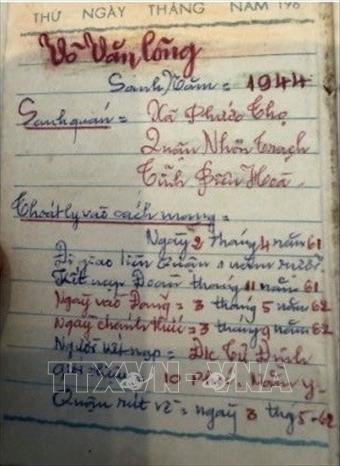 THỨ NGÀY THÁNG NĂM 196
Võ Văn Lõng
Sanh Năm = 1944
Sanh quán = Xã Phước Thọ
Quận Nhơn Trạch
Tỉnh Biên Hoà.
Thoát ly vào cách mạng =
Ngày 2 tháng 4 năm 61
Đi giao liên Quận 1 năm rưỡi
Kết nạp Đoàn tháng 11 năm 61
Ngày vào Đảng = 3 tháng 5 năm 62
Ngày chánh thức = 3 tháng 9 năm 62
Người kết nạp = Đ/c Tư Đinh
10 Năm
TTXVN - VNA
Quận rút về = ngày 3 thg 5-62